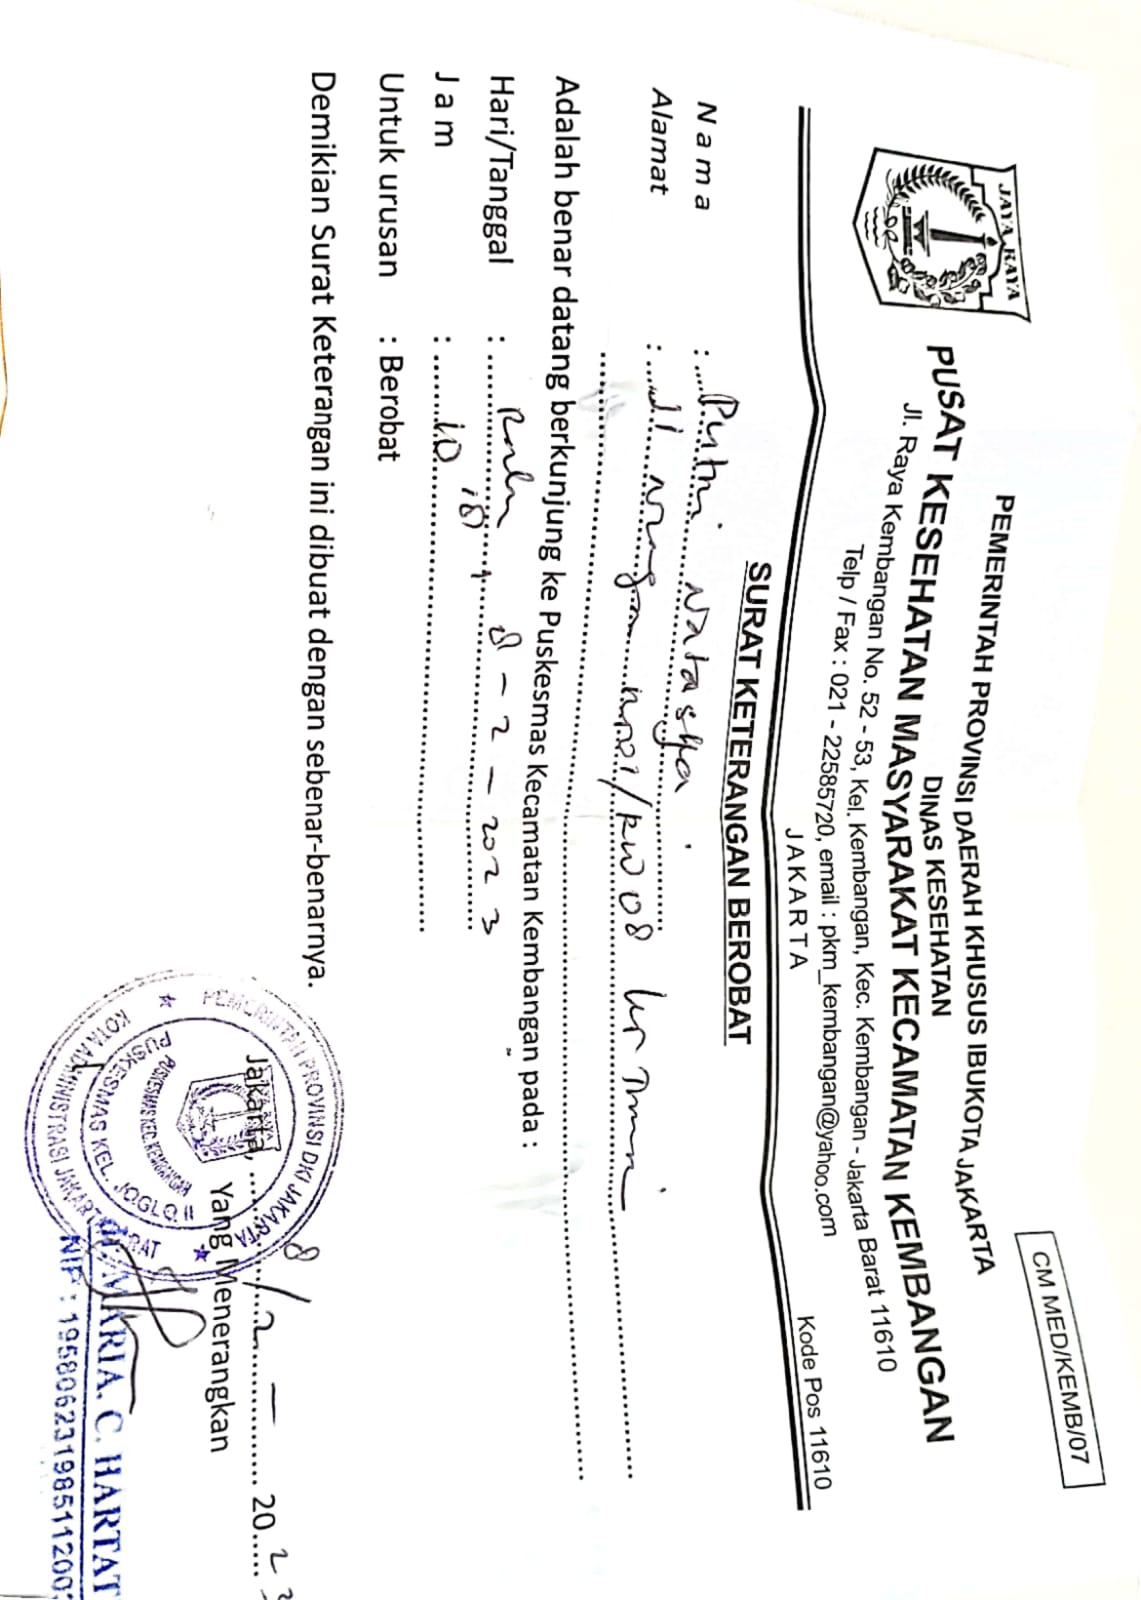 CM MED/KEMB/07
JAYA RAYA
PEMERINTAH PROVINSI DAERAH KHUSUS IBUKOTA JAKARTA
DINAS KESEHATAN
PUSAT KESEHATAN MASYARAKAT KECAMATAN KEMBANGAN
Jl. Raya Kembangan No. 52 - 53, Kel. Kembangan, Kec. Kembangan - Jakarta Barat 11610
Telp / Fax : 021 - 22585720, email : pkm_kembangan@yahoo.com
JAKARTA
Kode Pos 11610
SURAT KETERANGAN BEROBAT
Nama : Putri Natasya
Alamat : Jl /RW 08
Adalah benar datang berkunjung ke Puskesmas Kecamatan Kembangan pada :
Hari/Tanggal : Rabu 8 - 2 - 2023
Jam : 10
Untuk urusan : Berobat
Demikian Surat Keterangan ini dibuat dengan sebenar-benarnya.
Jakarta, 8/2 - 2023
Yang Menerangkan
PEMERINTAH PROVINSI DKI JAKARTA
KOTA ADMINISTRASI JAKARTA BARAT
PUSKESMAS KEC. KEMBANGAN
PUSKESMAS KEL. JOGLO II
MARIA. C. HARTAT
NIP : 19580623198511200